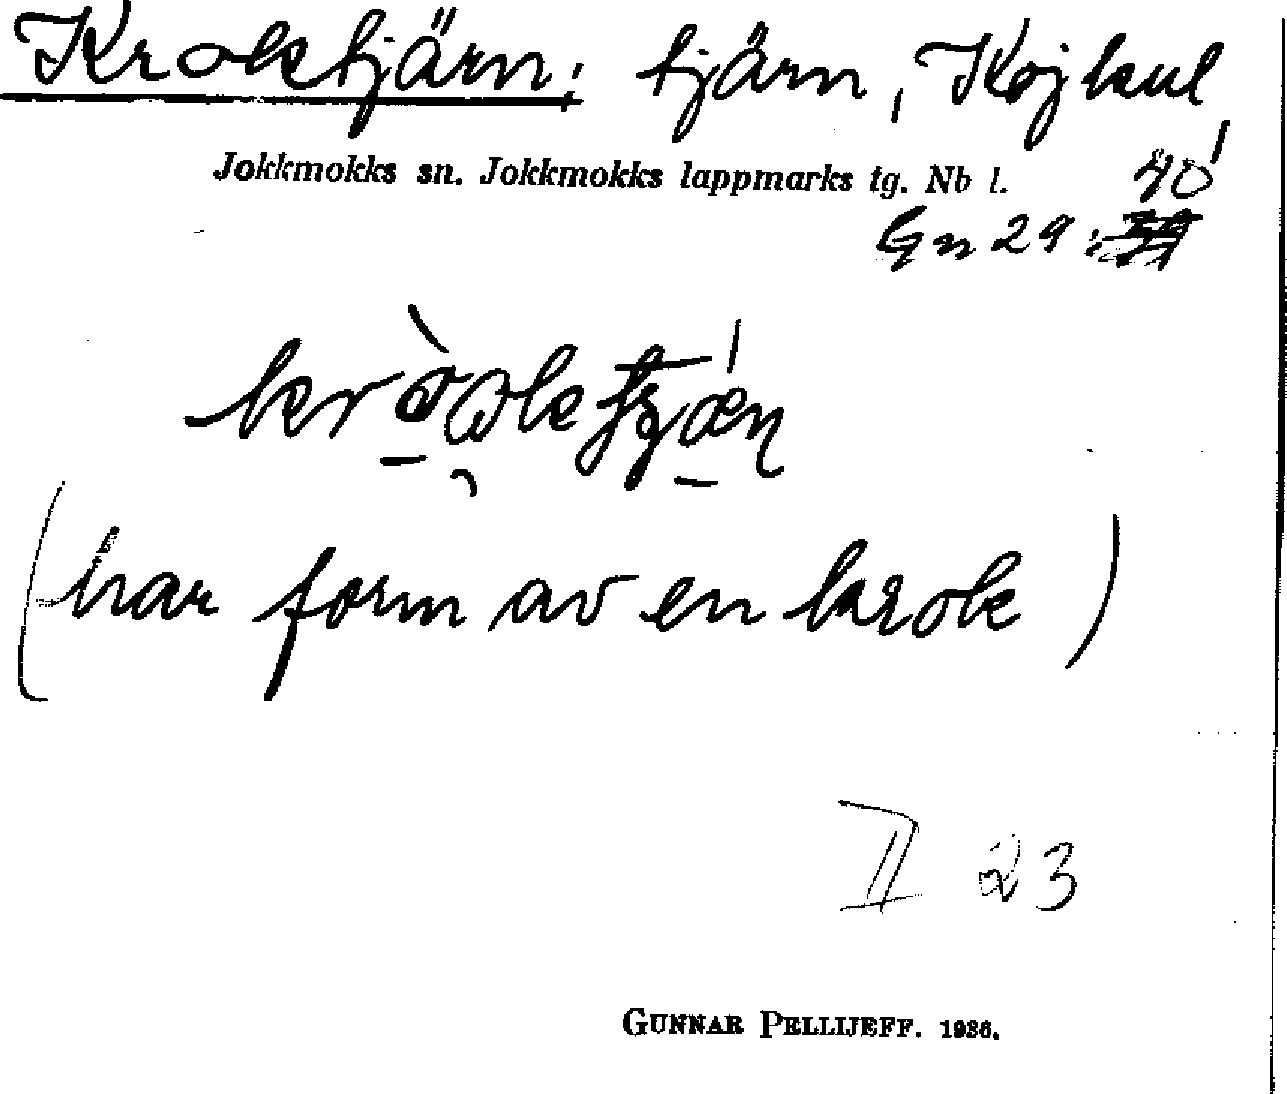 Kroktjärn; tjärn, Kojkul
Jokkmokks sn. Jokkmokks lappmarks tg. Nb l.
40
Gn 29:
(har form av en krok)
II 23
GUNNAR PELLIJEFF. 1936.